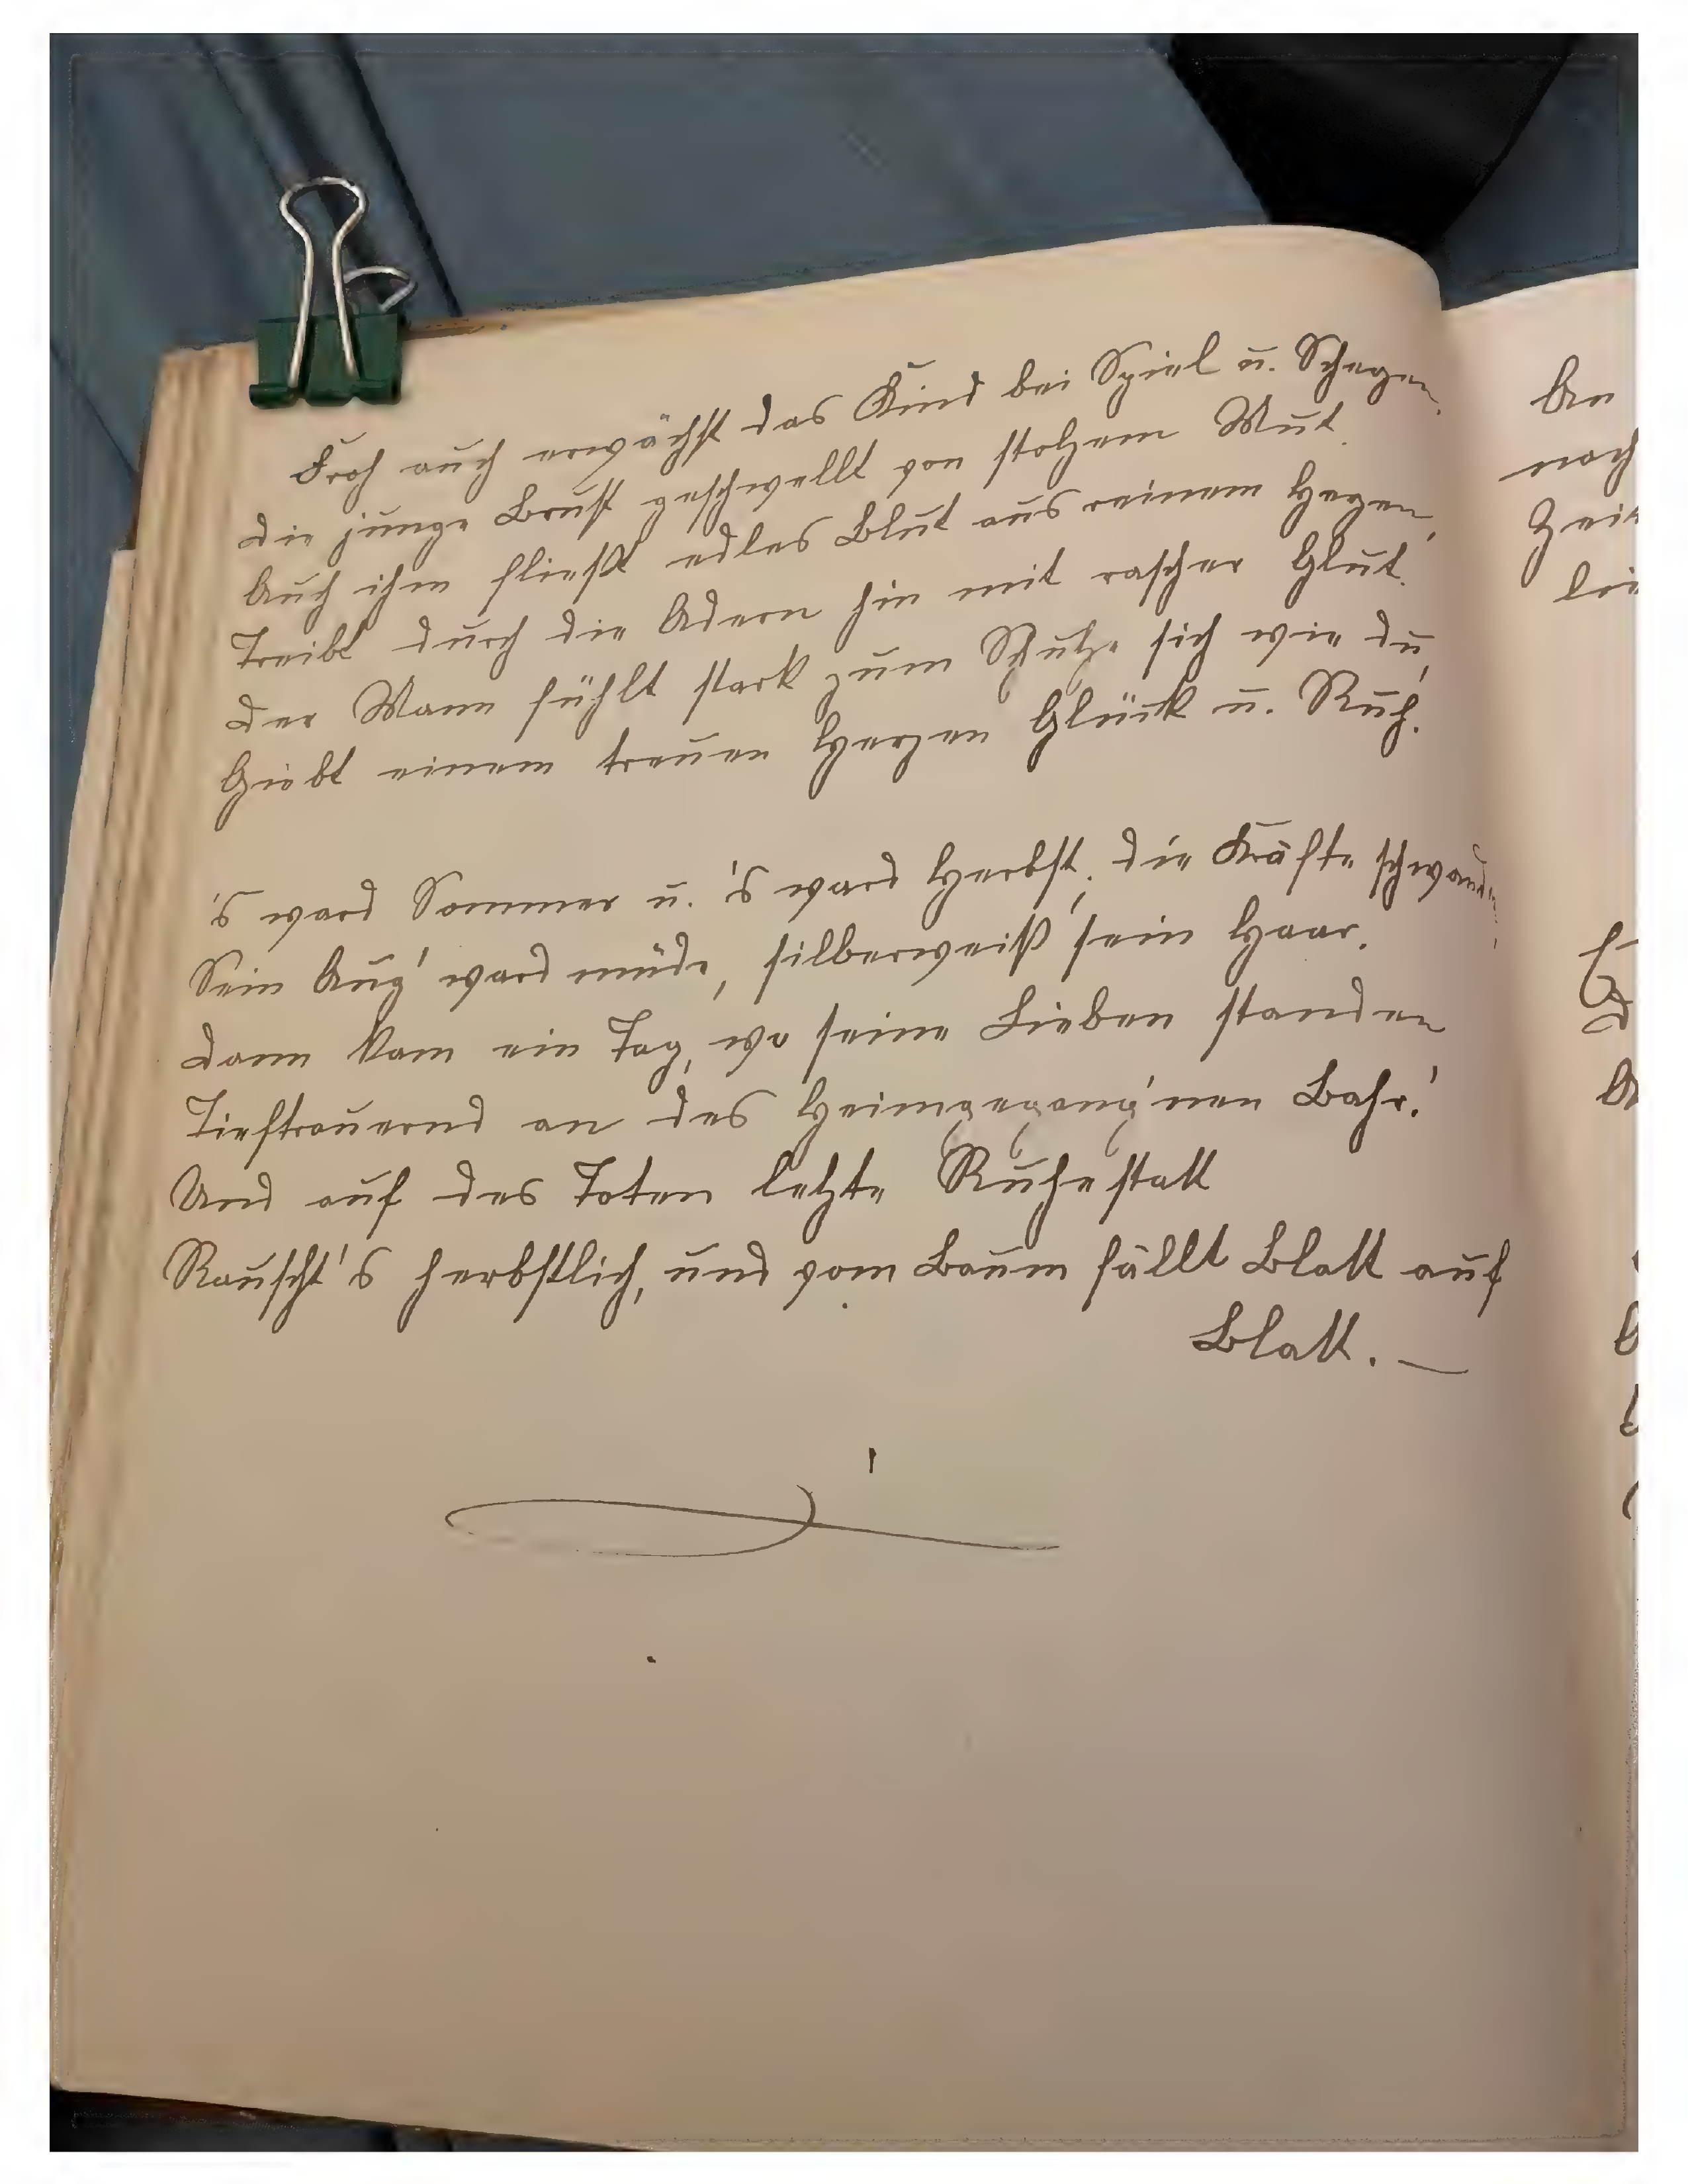 Froh auch erwächst das Kind bei Spiel u. Scherzen,
Die junge Brust geschwellt von stolzem Mut.
Auch ihm fließt edles Blut aus reinem Herzen,
Treibt durch die Adern hin mit rascher Glut.
Der Mann fühlt stark zum Schutze sich wie du,
Giebt einem treuen Herzen Glück u. Ruh.
's ward Sommer u. 's ward Herbst, die Kräfte schwanden
Sein Aug' ward müde, silberweiß sein Haar.
Dann kam ein Tag, wo seine Lieben standen
Tieftrauernd an des Heimgegang'nen Bahr'.
Und auf des Toten letzte Ruhestatt
Rauscht's herbstlich, und vom Baum fällt Blatt auf
Blatt. —
An
noch